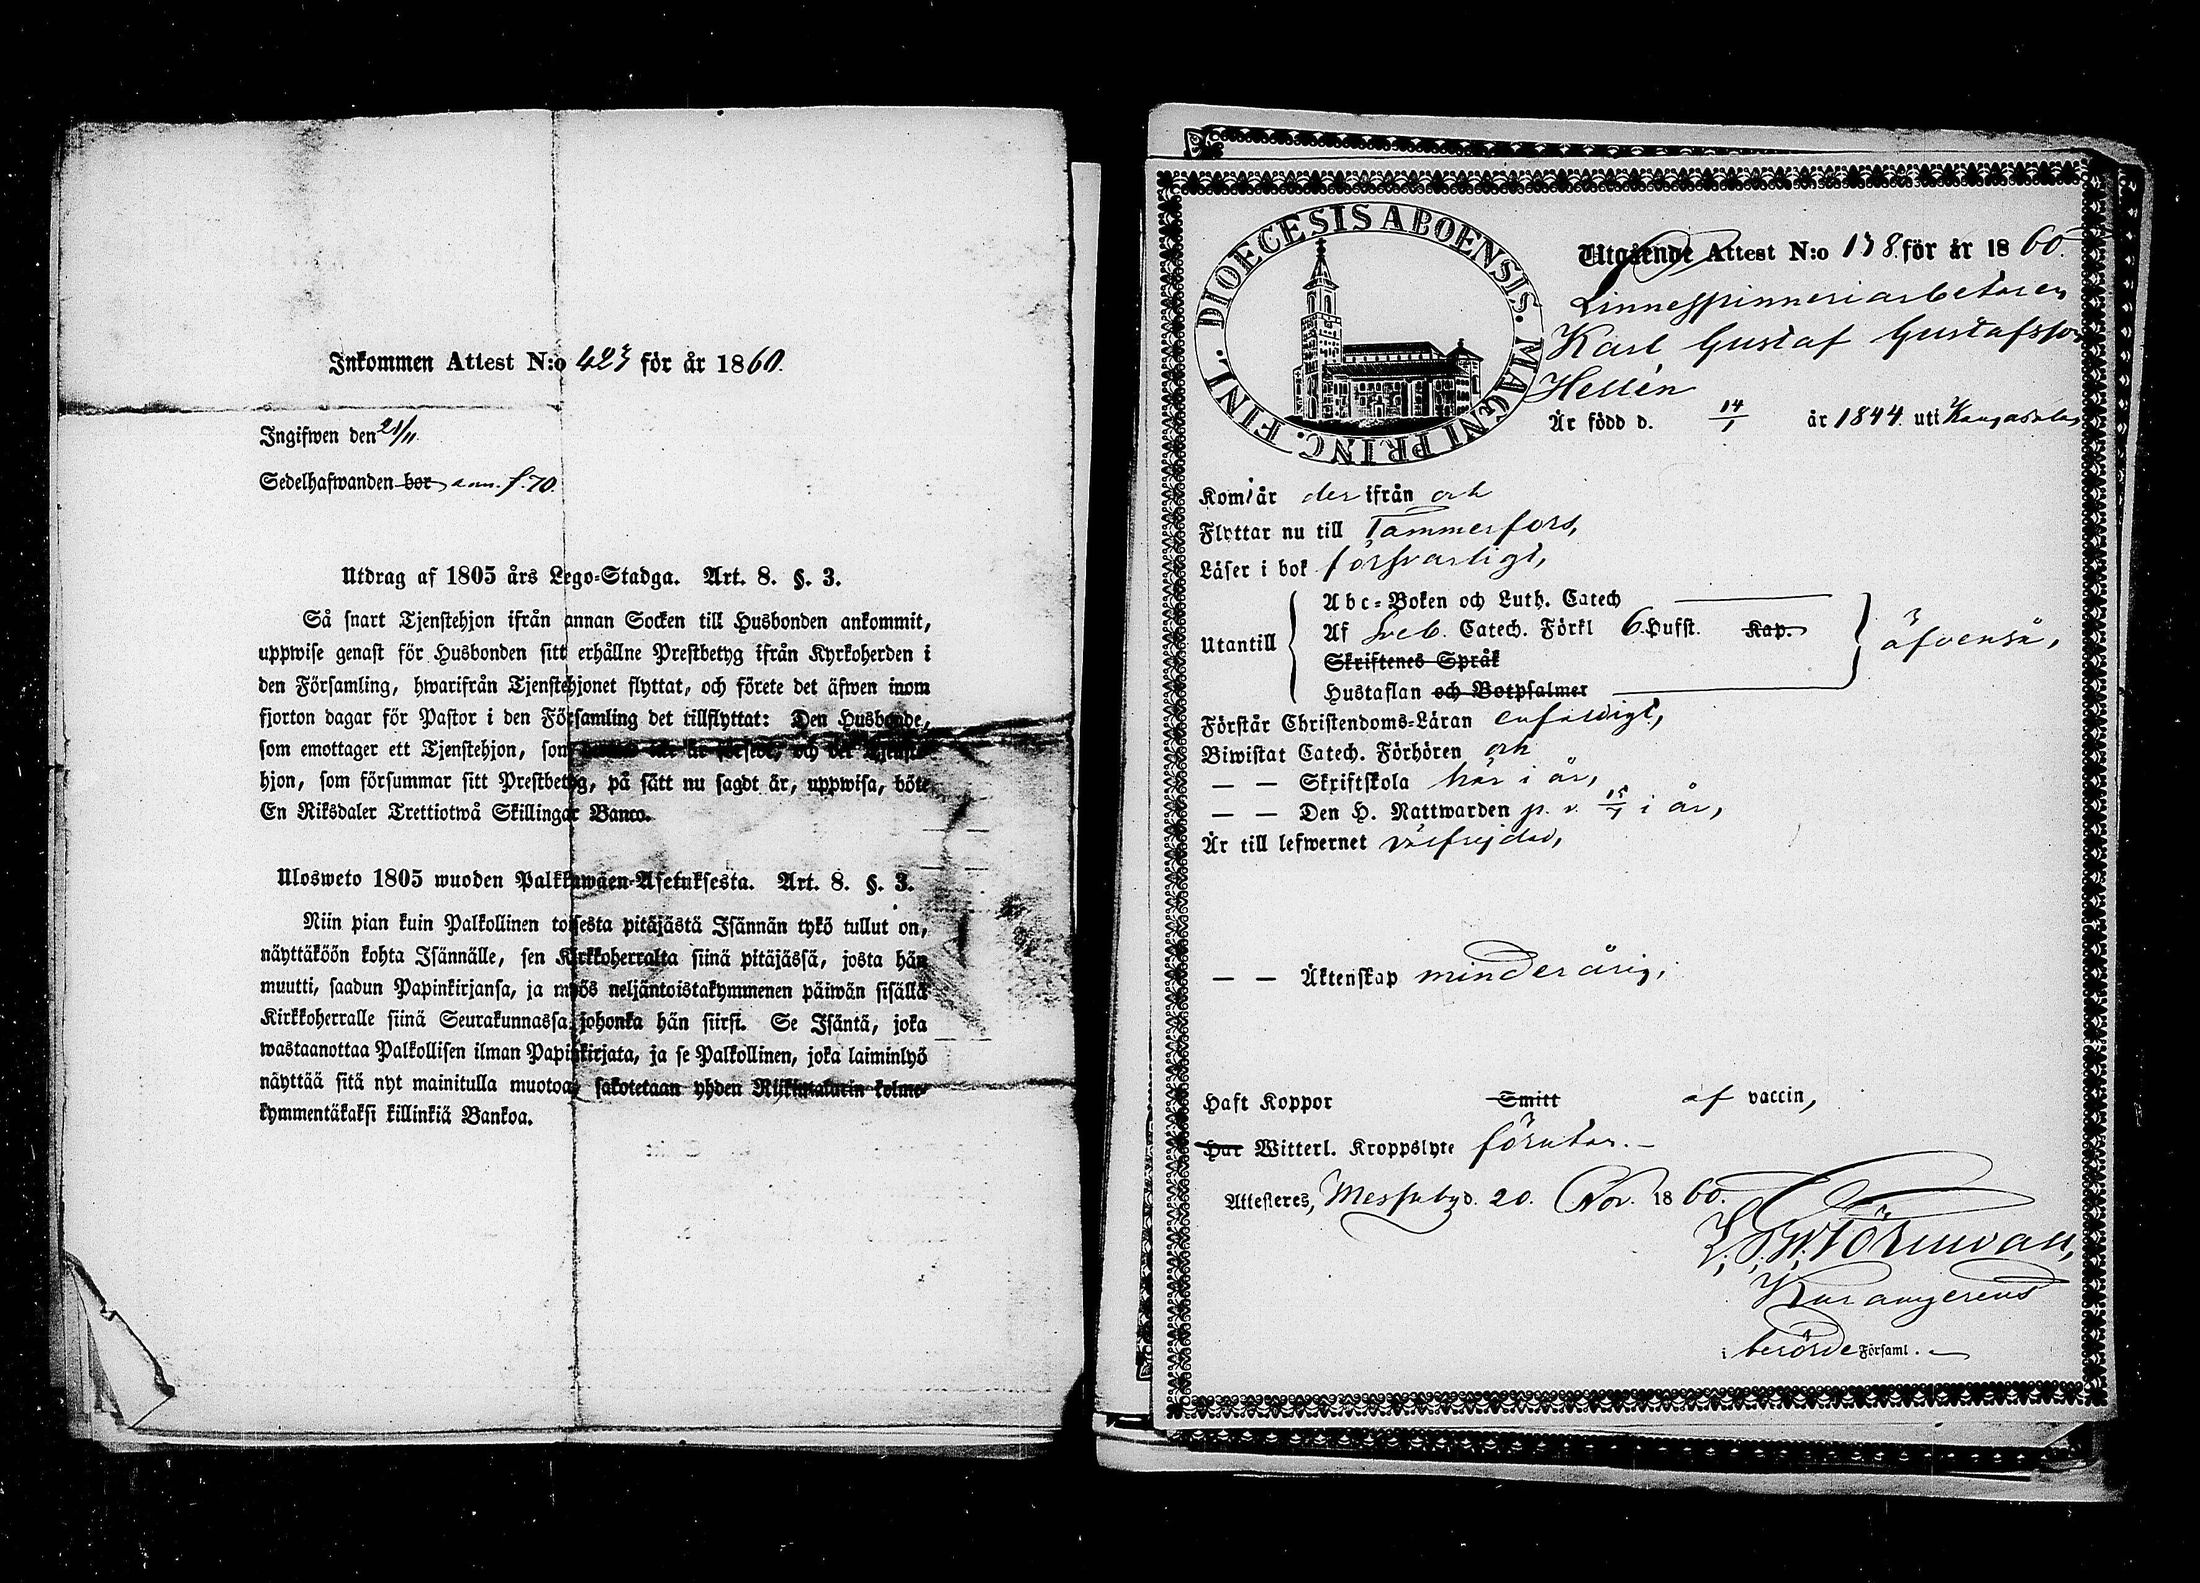 Inkommen Attest N:o 423 för år 1860.
Ingifwen den 21/11.
Sedelhafwanden bor ann. f. 70.
Utdrag af 1805 års Lego-Stadga. Art. 8. §. 3.
Så snart Tjenstehjon ifrån annan Socken till Husbonden ankommit,
uppwise genast för Husbonden sitt erhållne Prestbetyg ifrån Kyrkoherden i
den Församling, hwarifrån Tjenstehjonet flyttat, och förete det äfwen inom
fjorton dagar för Pastor i den Församling det tillflyttat: Den Husbonde,
som emottager ett Tjenstehjon, som och det Tjenste-
hjon, som försummar sitt Prestbetyg, på sätt nu sagdt är, uppwisa, böte
En Riksdaler Trettiotwå Skillingar Banco.
Ulosweto 1805 wuoden Palkkawäen-Asetuksesta. Art. 8. §. 3.
Niin pian kuin Palkollinen toisesta pitäjästä Isännän tykö tullut on,
näyttäköön kohta Isännälle, sen Kirkkoherralta siinä pitäjässä, josta hän
muutti, saadun Papinkirjansa, ja myös neljäntoistakymmenen päiwän sisällä
Kirkkoherralle siinä Seurakunnassa, johonka hän siirsi. Se Isäntä, joka
wastaanottaa Palkollisen ilman Papinkirjata, ja se Palkollinen, joka laiminlyö
näyttää sitä nyt mainitulla muotoa, sakotetaan yhden Riikintalarin kolme-
kymmentäkaksi killinkiä Bankoa.
DIOECESIS ABOENSIS. MAGNI PRINC. FINL.
Utgående Attest N:o 178. för år 1860.
Linnespinneriarbetaren
Karl Gustaf Gustafsson
Hellén
Är född d. 14/1 år 1844. uti Kangasala
Kom i år der ifrån och
Flyttar nu till Tammerfors,
Läser i bok försvarligt,
Utantill
Abc-Boken och Luth. Catech
Af Sveb. Catech. Förkl 6. Hufst. Kap.
Skriftenes Språk
Hustaflan och Botpsalmer
äfvenså,
Förstår Christendoms-Läran enfaldigt,
Biwistat Catech. Förhören och
— — Skriftskola här i år,
— — Den H. Nattwarden p. v. 15/7 i år,
Är till lefwernet välfrejdad,
— — Äktenskap minderårig,
Haft Koppor Smitt af vaccin,
Har Witterl. Kroppslyte förutan. —
Attesteres, Messuby d. 20. Nov. 1860.
Törnwall,
i berörde Församl. —